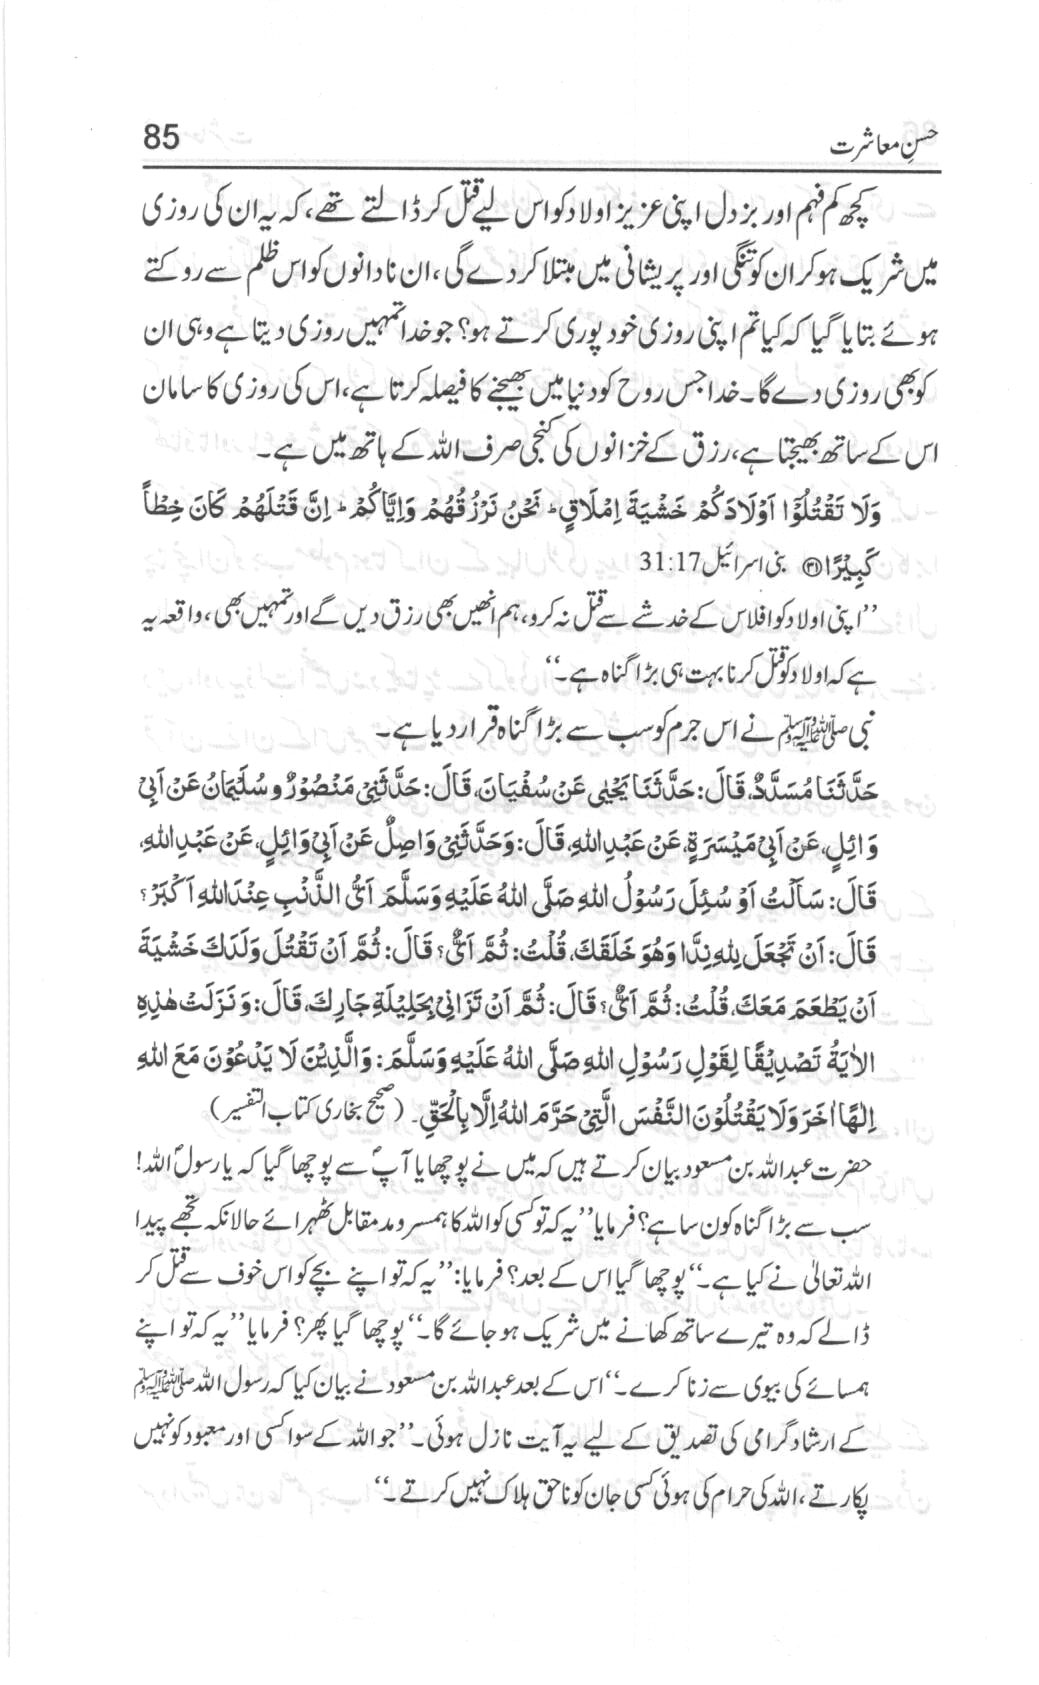 حسنِ معاشرت 85
کچھ کم فہم اور بزدل اپنی عزیز اولاد کو اس لیے قتل کر ڈالتے تھے، کہ یہ ان کی روزی
میں شریک ہو کر ان کو تنگی اور پریشانی میں مبتلا کر دے گی، ان نادانوں کو اس ظلم سے روکتے
ہوئے بتایا گیا کہ کیا تم اپنی روزی خود پوری کرتے ہو؟ جو خدا تمہیں روزی دیتا ہے وہی ان
کو بھی روزی دے گا۔ خدا جس روح کو دنیا میں بھیجنے کا فیصلہ کرتا ہے، اس کی روزی کا سامان
اس کے ساتھ بھیجتا ہے، رزق کے خزانوں کی کنجی صرف اللہ کے ہاتھ میں ہے۔
وَلَا تَقْتُلُوْٓا اَوْلَادَكُمْ خَشْيَةَ اِمْلَاقٍ ؕ نَحْنُ نَرْزُقُهُمْ وَاِيَّاكُمْ ؕ اِنَّ قَتْلَهُمْ كَانَ خِطْاً
كَبِيْرًا ﴿۳۱﴾ بنی اسرائیل 31:17
’’اپنی اولاد کو افلاس کے خدشے سے قتل نہ کرو، ہم انھیں بھی رزق دیں گے اور تمہیں بھی، واقعہ یہ
ہے کہ اولاد کو قتل کرنا بہت ہی بڑا گناہ ہے۔‘‘
نبی ﷺ نے اس جرم کو سب سے بڑا گناہ قرار دیا ہے۔
حَدَّثَنَا مُسَدَّدٌ، قَالَ: حَدَّثَنَا يَحْيٰى عَنْ سُفْيَانَ، قَالَ: حَدَّثَنِيْ مَنْصُوْرٌ وَ سُلَيْمَانُ عَنْ اَبِيْ
وَائِلٍ، عَنْ اَبِيْ مَيْسَرَةٍ، عَنْ عَبْدِ اللهِ، قَالَ: وَحَدَّثَنِيْ وَاصِلٌ عَنْ اَبِيْ وَائِلٍ، عَنْ عَبْدِ اللهِ،
قَالَ: سَاَلْتُ اَوْ سُئِلَ رَسُوْلُ اللهِ صَلَّى اللهُ عَلَيْهِ وَسَلَّمَ اَيُّ الذَّنْبِ عِنْدَ اللهِ اَكْبَرُ؟
قَالَ: اَنْ تَجْعَلَ لِلّٰهِ نِدًّا وَهُوَ خَلَقَكَ، قُلْتُ: ثُمَّ اَيٌّ؟ قَالَ: ثُمَّ اَنْ تَقْتُلَ وَلَدَكَ خَشْيَةَ
اَنْ يَطْعَمَ مَعَكَ، قُلْتُ: ثُمَّ اَيٌّ؟ قَالَ: ثُمَّ اَنْ تَزَانِيْ بِحَلِيْلَةِ جَارِكَ، قَالَ: وَ نَزَلَتْ هٰذِهِ
الْاٰيَةُ تَصْدِيْقًا لِقَوْلِ رَسُوْلِ اللهِ صَلَّى اللهُ عَلَيْهِ وَسَلَّمَ: وَالَّذِيْنَ لَا يَدْعُوْنَ مَعَ اللهِ
اِلٰهًا اٰخَرَ وَلَا يَقْتُلُوْنَ النَّفْسَ الَّتِيْ حَرَّمَ اللهُ اِلَّا بِالْحَقِّ۔ (صحیح بخاری کتاب التفسیر)
حضرت عبداللہ بن مسعود بیان کرتے ہیں کہ میں نے پوچھا یا آپؐ سے پوچھا گیا کہ یا رسولؐ اللہ!
سب سے بڑا گناہ کون سا ہے؟ فرمایا ’’یہ کہ تو کسی کو اللہ کا ہمسر و مد مقابل ٹھہرائے حالانکہ تجھے پیدا
اللہ تعالیٰ نے کیا ہے۔‘‘ پوچھا گیا اس کے بعد؟ فرمایا: ’’یہ کہ تو اپنے بچے کو اس خوف سے قتل کر
ڈالے کہ وہ تیرے ساتھ کھانے میں شریک ہو جائے گا۔‘‘ پوچھا گیا پھر؟ فرمایا ’’یہ کہ تو اپنے
ہمسائے کی بیوی سے زنا کرے۔‘‘ اس کے بعد عبداللہ بن مسعود نے بیان کیا کہ رسول اللہ ﷺ
کے ارشاد گرامی کی تصدیق کے لیے یہ آیت نازل ہوئی۔ ’’جو اللہ کے سوا کسی اور معبود کو نہیں
پکارتے، اللہ کی حرام کی ہوئی کسی جان کو ناحق ہلاک نہیں کرتے۔‘‘